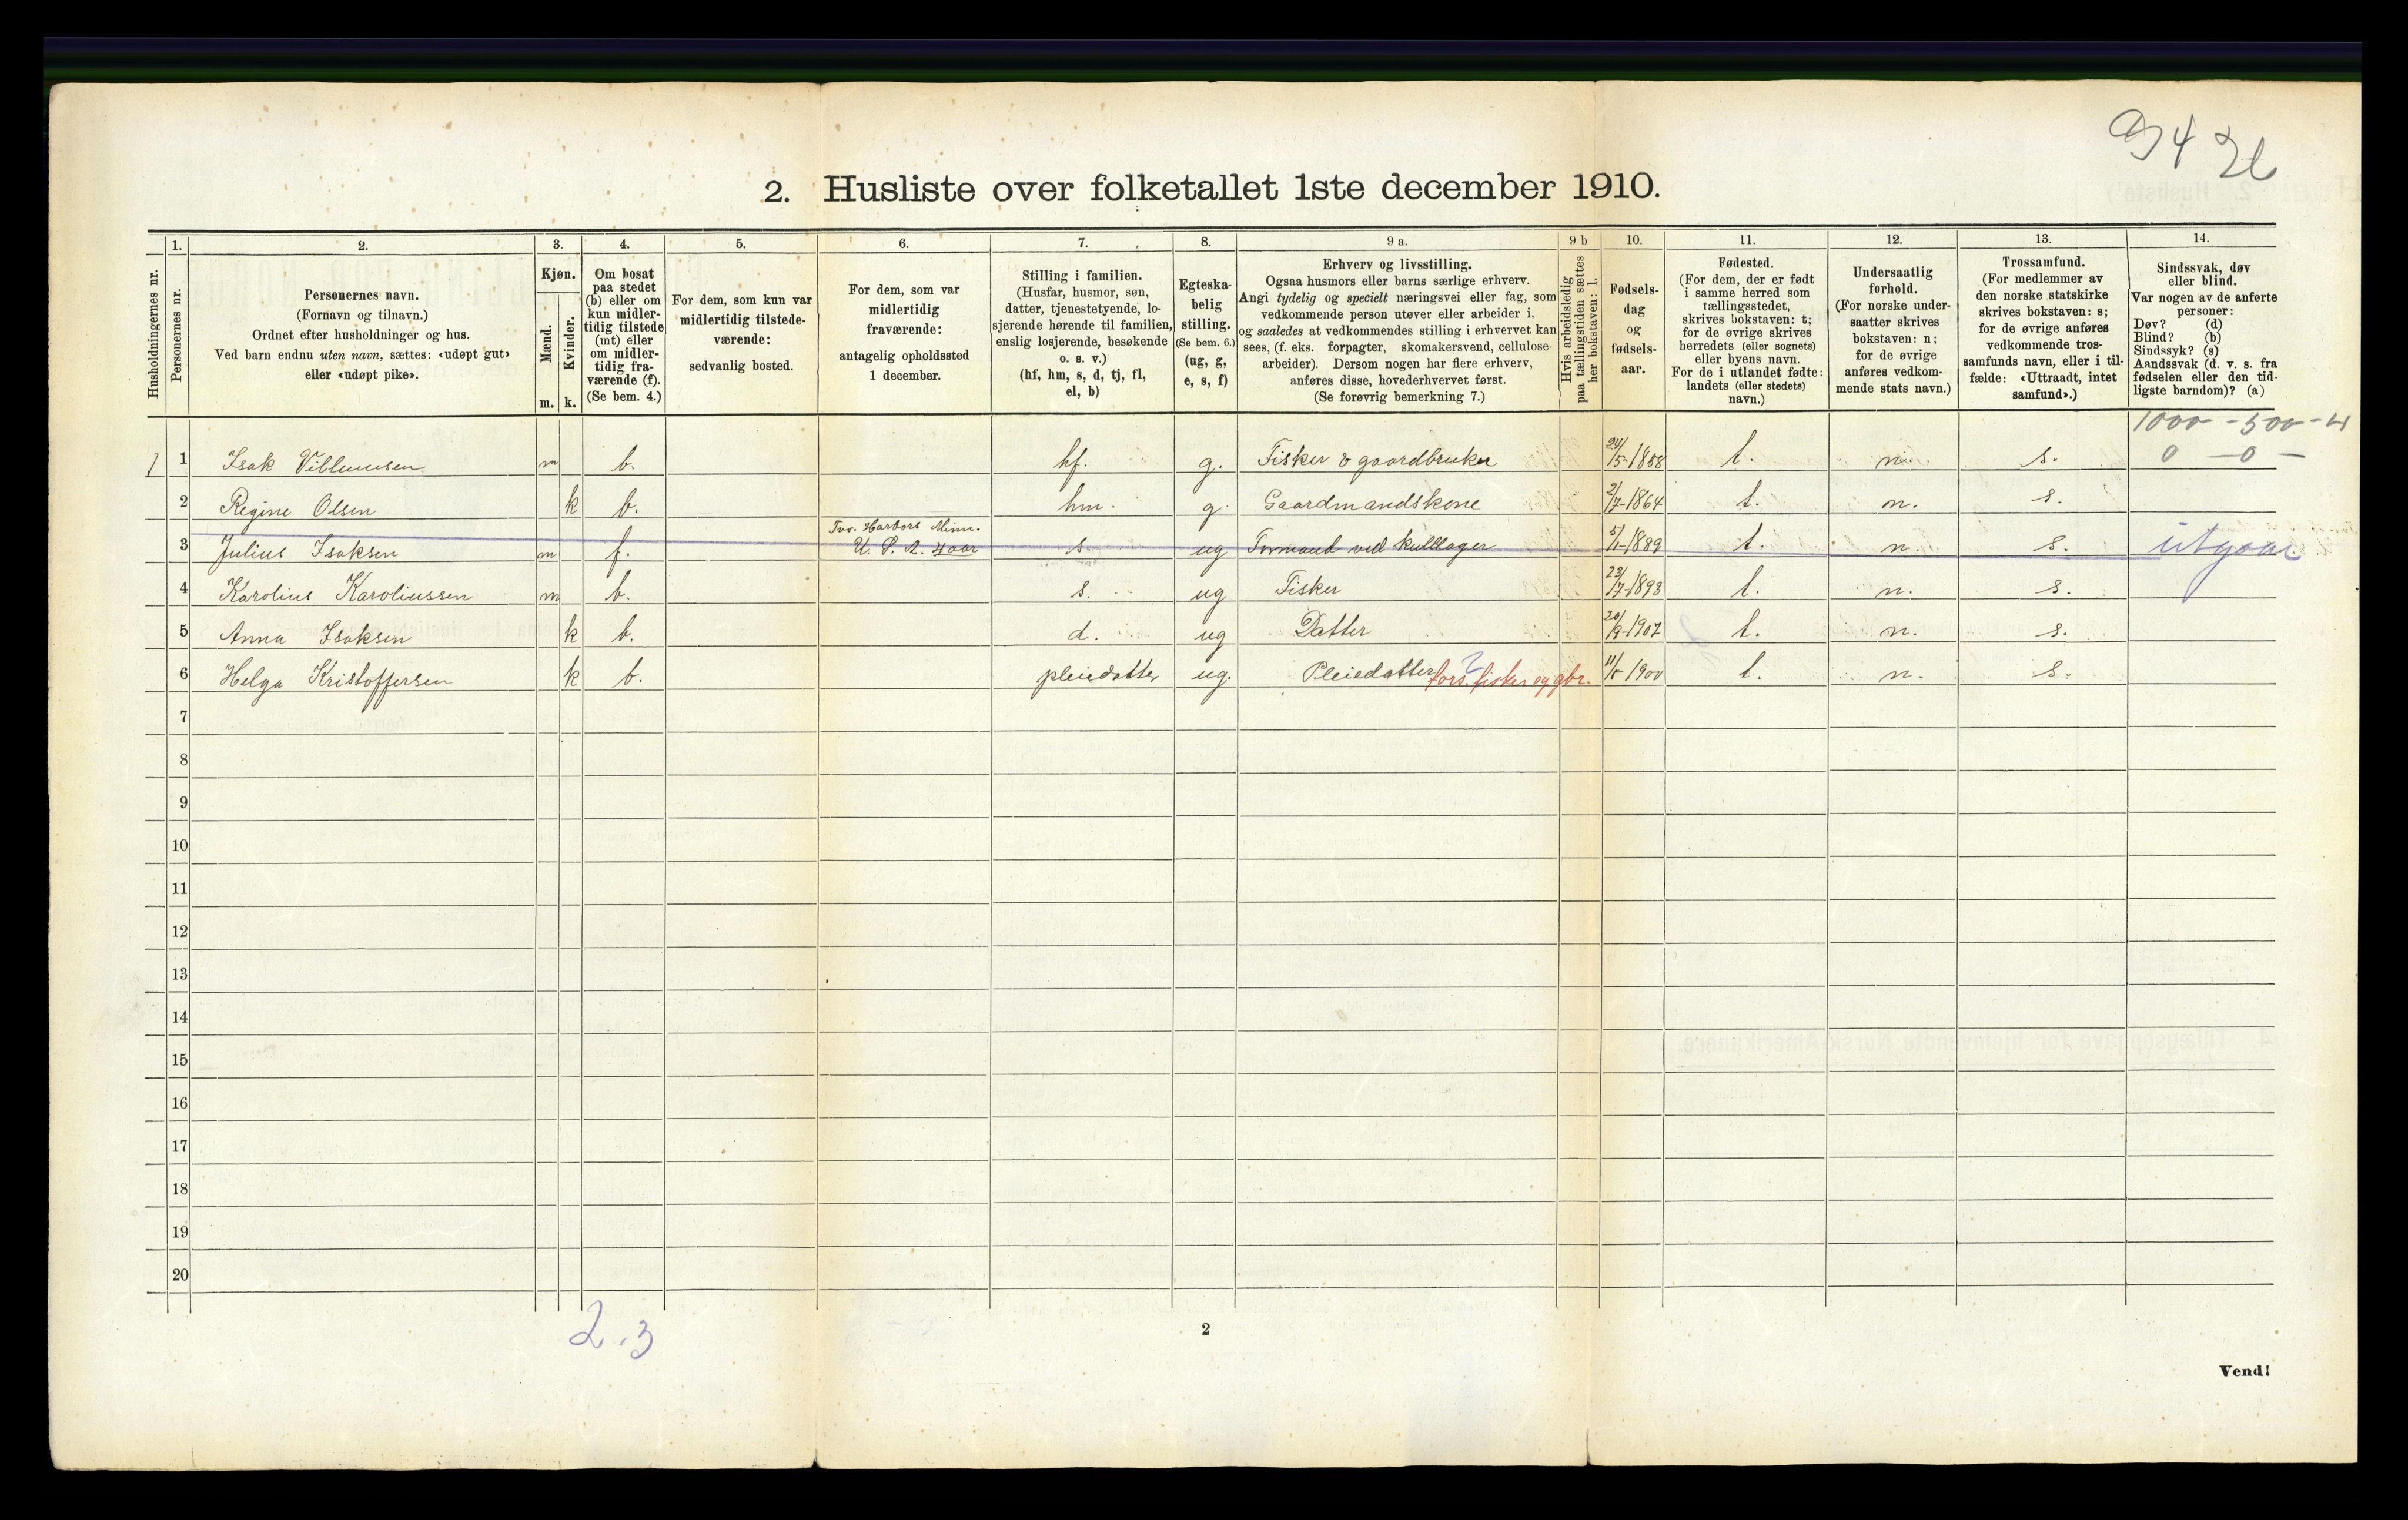 94 26
2. Husliste over folketallet 1ste december 1910.
Husholdningernes nr.
1. Personernes nr.
2. Personernes navn.
(Fornavn og tilnavn.)
Ordnet efter husholdninger og hus.
Ved barn endnu uten navn, sættes: «udøpt gut»
eller «udøpt pike».
3. Kjøn.
Mænd. m.
Kvinder. k.
4. Om bosat
paa stedet
(b) eller om
kun midler-
tidig tilstede
(mt) eller
om midler-
tidig fra-
værende (f).
(Se bem. 4.)
5. For dem, som kun var
midlertidig tilstede-
værende:
sedvanlig bosted.
6. For dem, som var
midlertidig
fraværende:
antagelig opholdssted
1 december.
7. Stilling i familien.
(Husfar, husmor, søn,
datter, tjenestetyende, lo-
sjerende hørende til familien,
enslig losjerende, besøkende
o. s. v.)
(hf, hm, s, d, tj, fl,
el, b)
8. Egteska-
belig
stilling.
(Se bem. 6.)
(ug, g,
e, s, f)
9 a. Erhverv og livsstilling.
Ogsaa husmors eller barns særlige erhverv.
Angi tydelig og specielt næringsvei eller fag, som
vedkommende person utøver eller arbeider i,
og saaledes at vedkommendes stilling i erhvervet kan
sees, (f. eks. forpagter, skomakersvend, cellulose-
arbeider). Dersom nogen har flere erhverv,
anføres disse, hovederhvervet først.
(Se forøvrig bemerkning 7.)
9 b Hvis arbeidsledig
paa tællingstiden sættes
her bokstaven: l.
10. Fødsels-
dag
og
fødsels-
aar.
11. Fødested.
(For dem, der er født
i samme herred som
tællingsstedet,
skrives bokstaven: t;
for de øvrige skrives
herredets (eller sognets)
eller byens navn.
For de i utlandet fødte:
landets (eller stedets)
navn.)
12. Undersaatlig
forhold.
(For norske under-
saatter skrives
bokstaven: n;
for de øvrige
anføres vedkom-
mende stats navn.)
13. Trossamfund.
(For medlemmer av
den norske statskirke
skrives bokstaven: s;
for de øvrige anføres
vedkommende tros-
samfunds navn, eller i til-
fælde: «Uttraadt, intet
samfund».)
14. Sindssvak, døv
eller blind.
Var nogen av de anførte
personer:
Døv? (d)
Blind? (b)
Sindssyk? (s)
Aandssvak (d. v. s. fra
fødselen eller den tid-
ligste barndom)? (a)
1000 - 500 - 4
0 - 0 -
1 1 Isak Villumsen m b. hf. g. Fisker & gaardbruker 24/5-1858 t. n. s.
2 Regine Olsen k b. hm. g. Gaardmandskone 2/7-1864 t. n. s.
Minn.
3 Julius Isaksen m f. U. S. A. 4 aar s. ug Formand ved kullager 5/1-1889 t. n. s. utgaar
4 Karolius Karoliussen m b. s. ug Fisker 23/7-1893 t. n. s.
5 Anna Isaksen k b. d. ug Datter 20/9-1907 t. n. s.
6 Helga Kristoffersen k b. pleiedatter ug. Pleiedatter ? fors. fisker og gbr. 1900 t. n. s.
7
8
9
10
11
12
13
14
15
16
17
18
19
20
2.3
2
Vend!